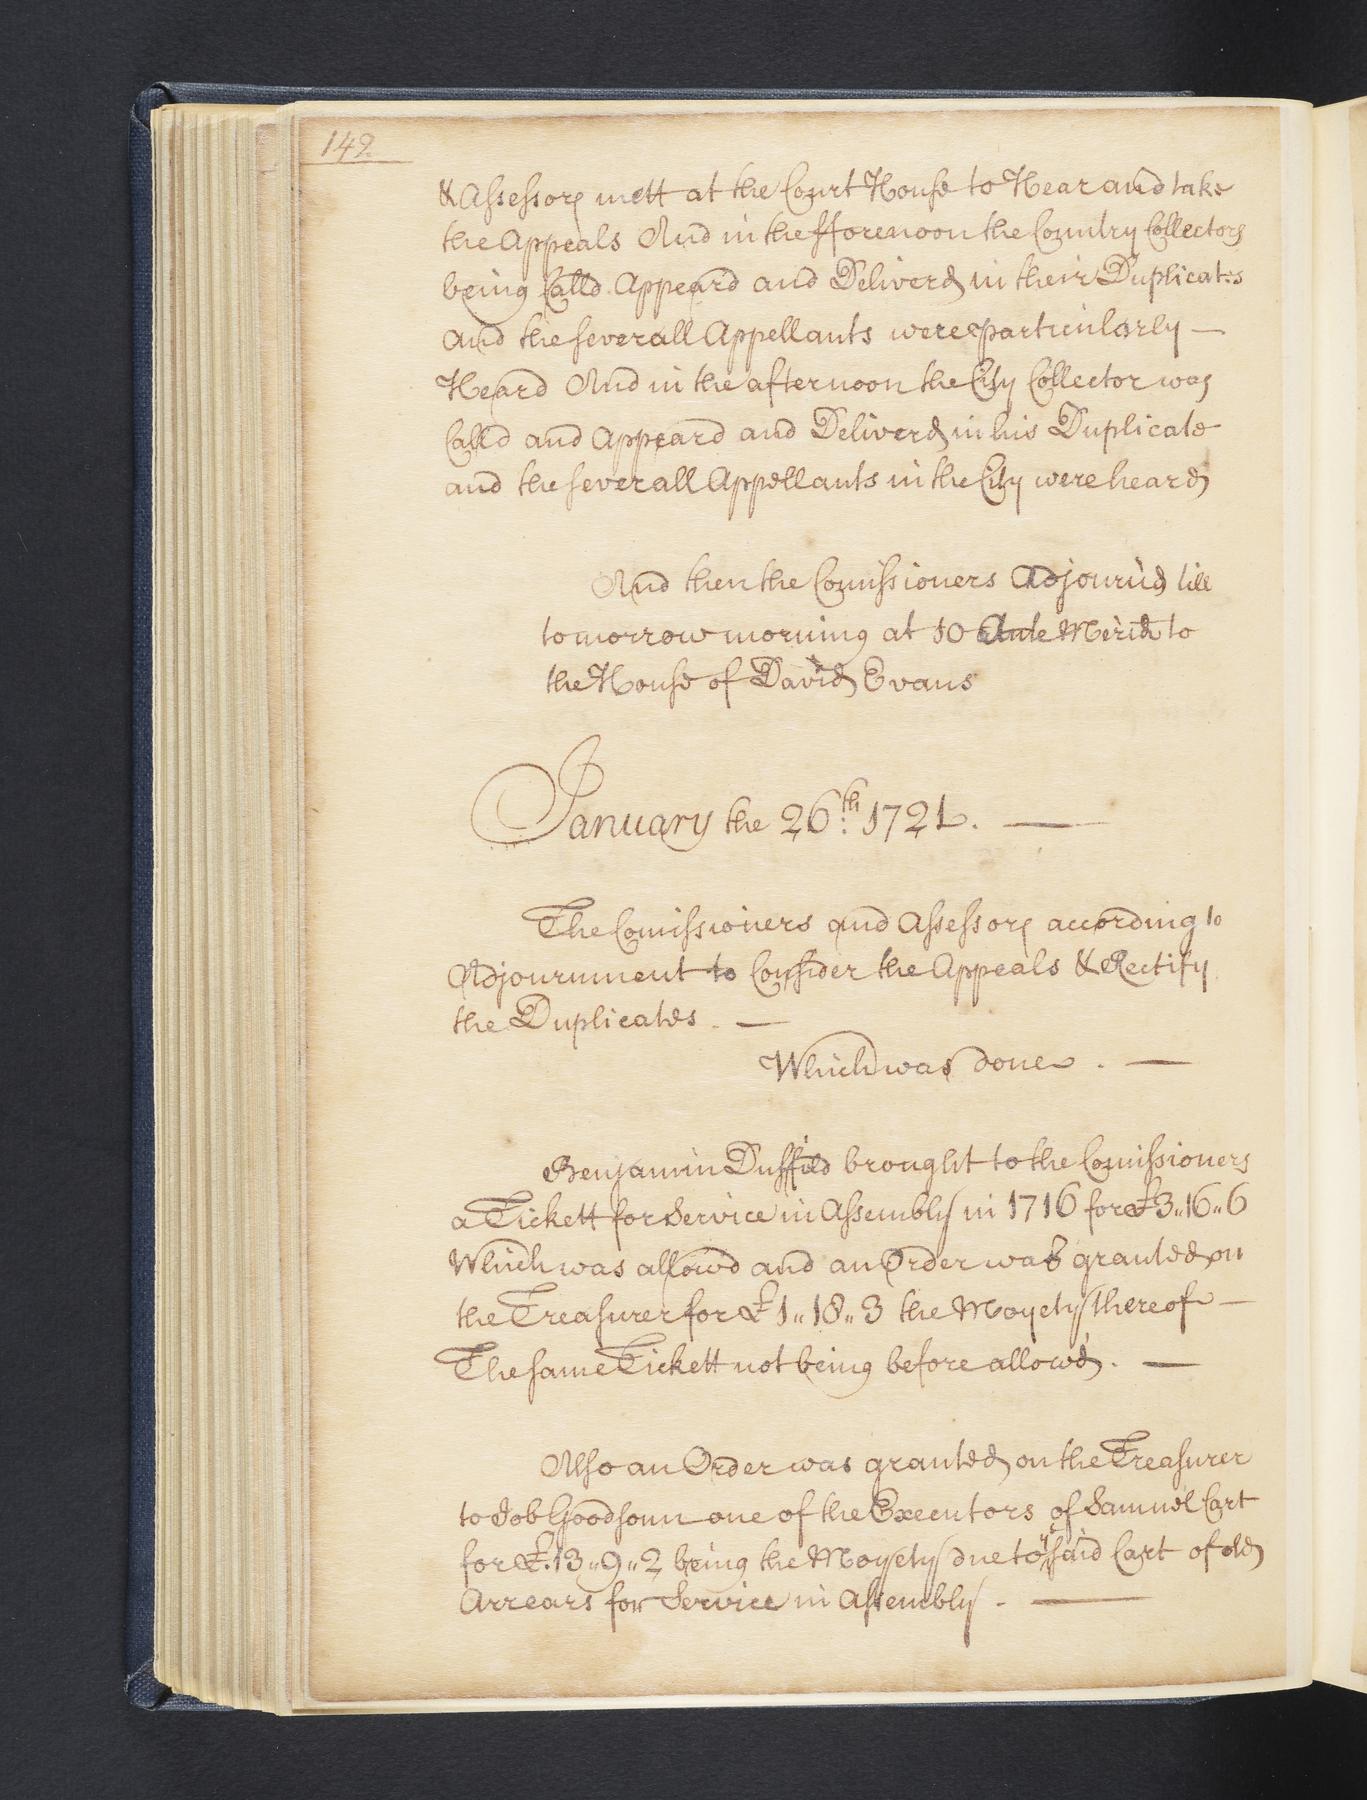 142.
& Assessors mett at the Court House to Hear and take
the Appeals And in the fforenoon the Country Collectors
being Calld Appeard and Deliverd in their Duplicates
and the severall Appellants were particularly —
Heard And in the afternoon the City Collector was
Calld and Appeard and Deliverd in his Duplicate
and the severall Appellants in the City were heard
And then the Comissioners Adjournd till
tomorrow morning at 10 Ante Merid to
the House of David Evans
January the 26th. 1721. —
The Comissioners and Assessors according to
Adjournment to Consider the Appeals & Rectify
the Duplicates. —
Which was done. —
Benjamin Duffild brought to the Comissioners
a Tickett for Service in Assembly in 1716 for £3..16..6
Which was allowd and an Order was granted on
the Treasurer for £1..18..3 the Moyety thereof —
The same Tickett not being before allowd. —
Also an Order was granted on the Treasurer
to Job Goodsonn one of the Executors of Samuel Cart
for £.13..9..2 being the Moyety due to ye said Cart of old
Arrears for Service in Assembly. —